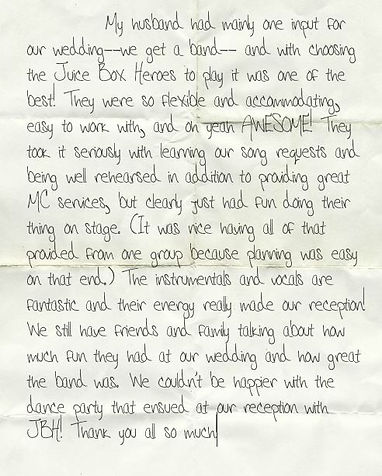 My husband had mainly one input for
our wedding--we get a band-- and with choosing
the Juice Box Heroes to play it was one of the
best! They were so flexible and accommodating,
easy to work with, and oh yeah AWESOME! They
took it seriously with learning our song requests and
being well rehearsed in addition to providing great
MC services, but clearly just had fun doing their
thing on stage. (It was nice having all of that
provided from one group because planning was easy
on that end.) The instrumentals and vocals are
fantastic and their energy really made our reception!
We still have friends and family talking about how
much fun they had at our wedding and how great
the band was. We couldn't be happier with the
dance party that ensued at our reception with
JBH! Thank you all so much!